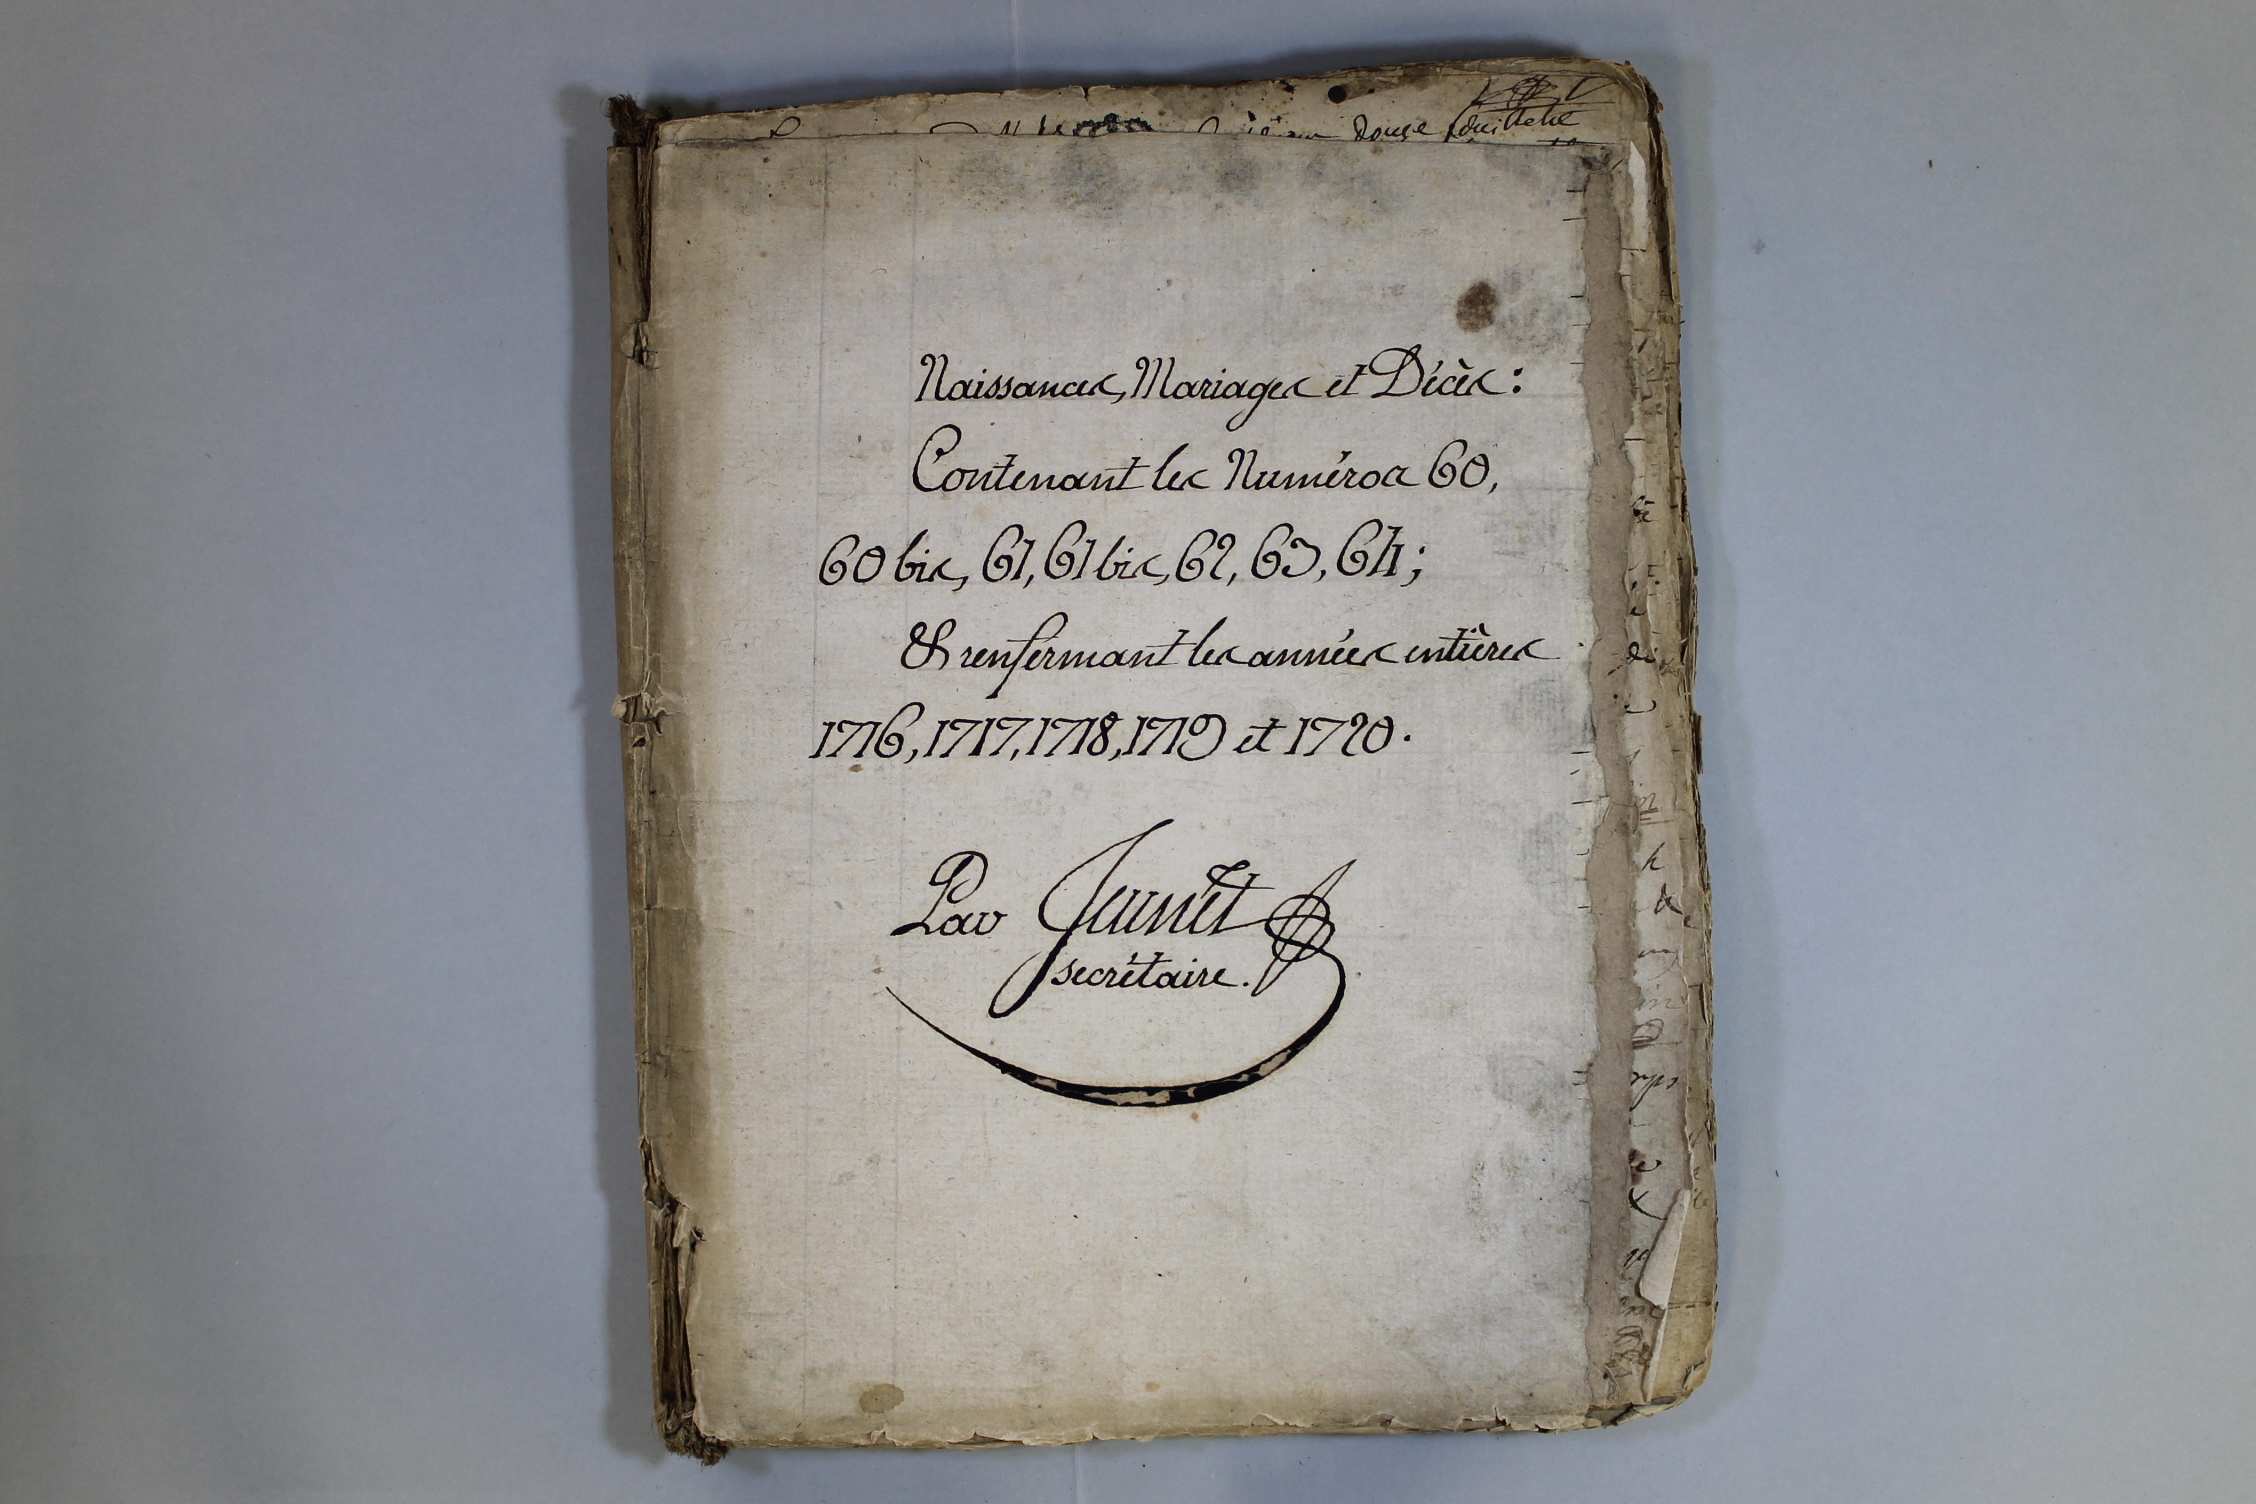 douze feuillets
Naissances, Mariages et Décès:
Contenant les Numéros 60,
60 bis, 61, 61 bis, 62, 63, 64;
& renfermant les années entières
1716, 1717, 1718, 1719 et 1720.
Par Jeunet
secrétaire.